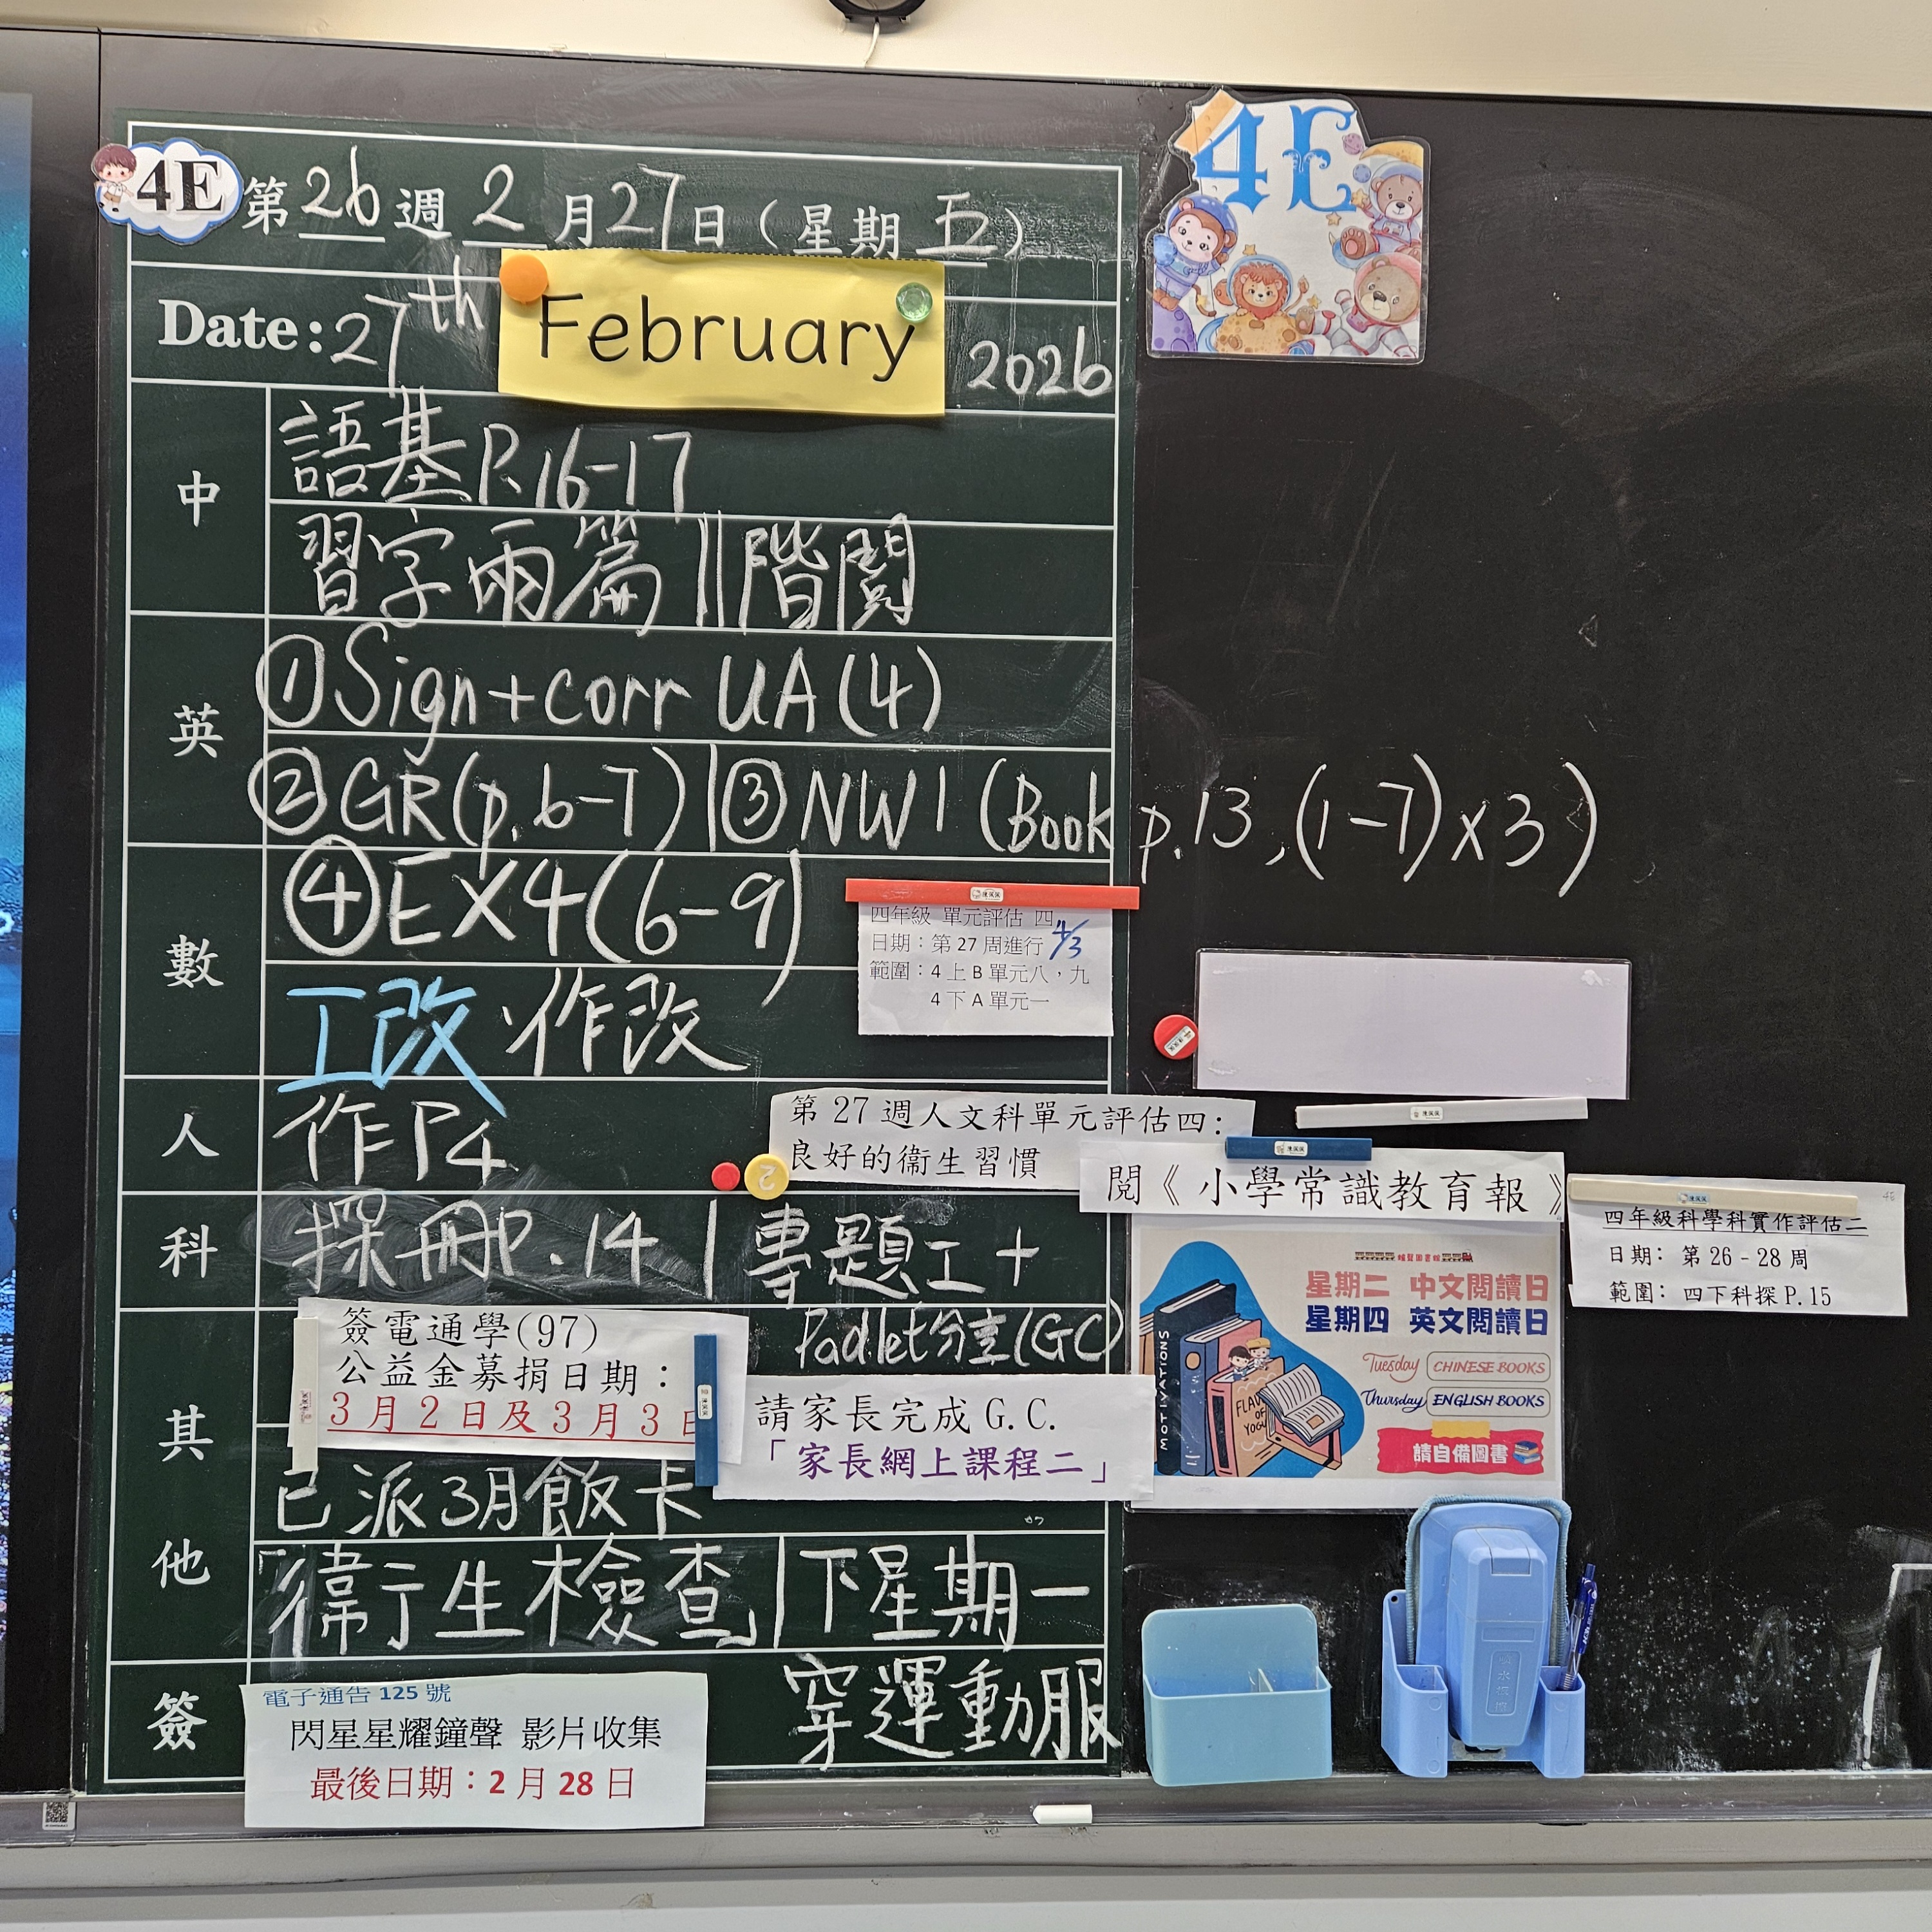 4E
第26週2月27日（星期五）
4E
Date: 27th February 2026
中
語基P.16-17
習字兩篇||階閱
英
①Sign+corr UA(4)
②GR(p.6-7)|③NW1(Book p.13,(1-7)x3)
數
④EX4(6-9)
工改、作改
四年級 單元評估 四
日期：第27周進行 4/3
範圍：4上B單元八，九
4下A單元一
人
作P4
第27週人文科單元評估四：
良好的衞生習慣
閱《小學常識教育報》
科
探冊P.14|專題工+
Padlet分享(GC)
四年級科學科實作評估二
日期：第26-28周
範圍：四下科探P.15
4E
星期二 中文閱讀日
星期四 英文閱讀日
Tuesday CHINESE BOOKS
Thursday ENGLISH BOOKS
請自備圖書
MOTIVATIONS
其他
簽電通學(97)
公益金募捐日期：
3月2日及3月3日
請家長完成G.C.
「家長網上課程二」
已派3月飯卡
「衞生檢查」|下星期一
穿運動服
簽
電子通告125號
閃星星耀鐘聲 影片收集
最後日期：2月28日